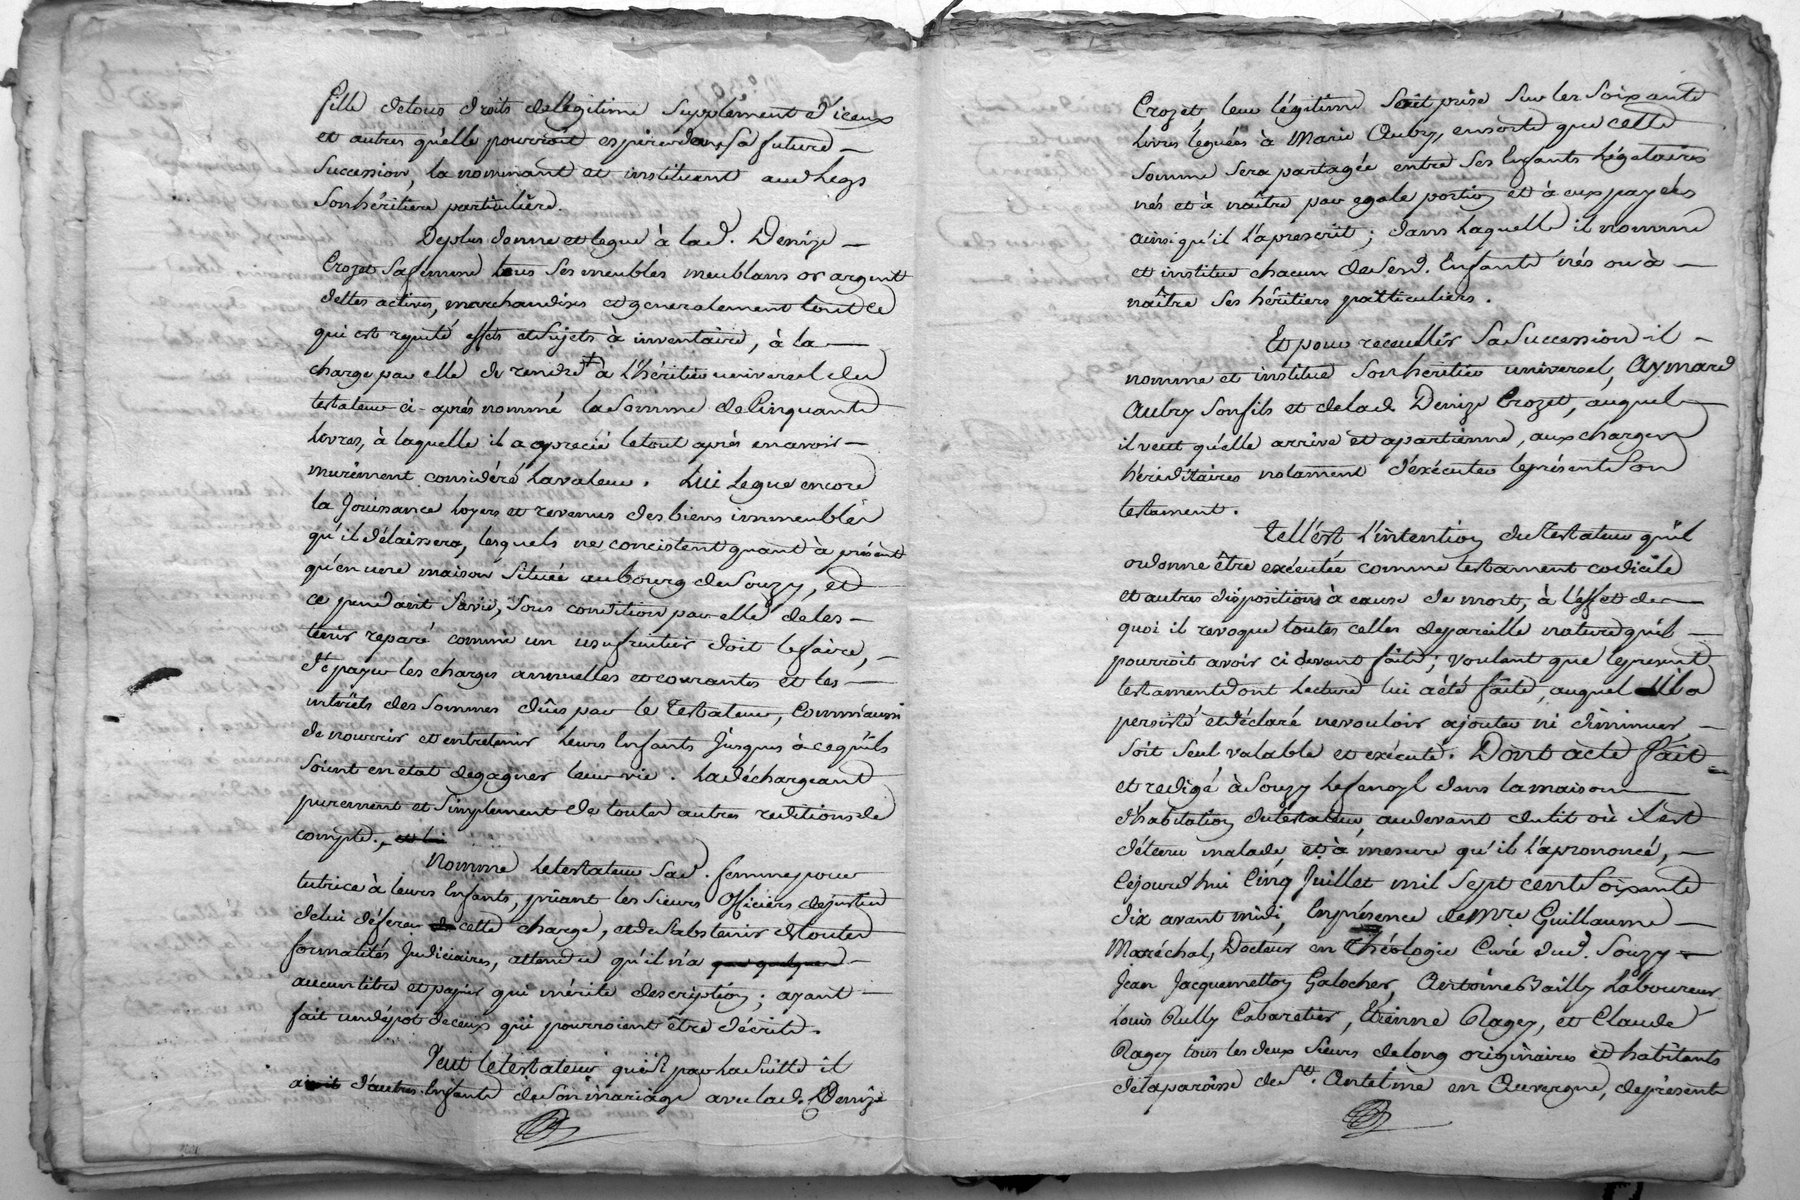 fille de tous droits de légitime supplement d'iceux
et autres qu'elle pourroit espérer dans sa future
succession, la nommant et instituant aud. legs
son héritiere particulière.
De plus donne et legue à lad. Denize
Crozet sa femme tous ses meubles meublans or argent
dettes actives, marchandises et generalement tout ce
qui est reputé effets et sujets à inventaire, à la
charge par elle de rendre + à l'héritier universel du
testateur ci-après nommé la somme de Cinquante
livres, à laquelle il a aprecié le tout après en avoir
murement considéré la valeur. Lui legue encore
la Jouissance loyers et revenus des biens immeubles
qu'il délaissera, lesquels ne concistent quant à présent
qu'en une maison située au bourg de Souzy, et
ce pendant sa vie, sous condition par elle de les
tenir reparé comme un usufruitier doit le faire,
d'e payer les charges annuelles et courantes et les
intérêts des sommes dûes par le testateur, comm'aussi
de nourrir et entretenir leurs Enfants jusques à ce qu'ils
soient en etat de gagner leur vie. La déchargeant
purement et simplement de toutes autres redition de
compte.
Nomme le testateur sad. femme pour
tutrice à leurs Enfants, priant les sieurs Officiers de justice
de lui déferer cette charge, et de s'abstenir de toutes
formalités Judiciaires, attendu qu'il n'a
aucun titre et papier qui mérite description; ayant
fait un dépot de ceux qui pourroient être décrits.
Veut le testateur que si par la suitte il
avoit d'autres Enfants de son mariage avec lad. Denize
Crozet, leur légitime soit prise sur les soixante
livres léguées à Marie Aubry, ensorte que cette
somme sera partagée entre ses Enfants légataires
nés et à naître par egale portion et à eux payées
ainsi qu'il l'a prescrit; dans laquelle il nomme
et institue chacun de sesd. Enfants nés ou à
naître ses héritiers particuliers.
Et pour recueillir sa succession il
nomme et institue son héritier universel, Aymard
Aubry son fils et de lad. Denize Crozet, auquel
il veut qu'elle arrive et apartienne, aux charges
héréditaires notament d'exécuter le présent son
testament.
Tell'est l'intention du testateur qu'il
ordonne être exécutée comme testament codicile
et autres dispositions à cause de mort, à l'effet de
quoi il revoque toutes celles de pareille nature qu'il
pourroit avoir ci devant faites; voulant que le présent
testament dont lecture lui a été faite, auquel il a
persisté et déclaré ne vouloir ajouter ni diminuer
soit seul valable et exécuté. Dont acte fait
et redigé à Souzy dans la maison
d'habitation du testateur, au devant du lit où il est
détenu malade, et à mesure qu'il l'a prononcé,
Cejourd'hui Cinq Juillet mil sept cent soixante
dix avant midi, En présence de Mre. Guillaume
Maréchal, Docteur en théologie Curé dud. Souzy
Jean Jacquemetton Galocher, Antoine Bailly Laboureur
Louis Rully Cabaretier, Etienne Ragey, et Claude
Ragey tous les deux sieurs de long originaires et habitants
de la paroisse de St. Antelme en Auvergne, de présent